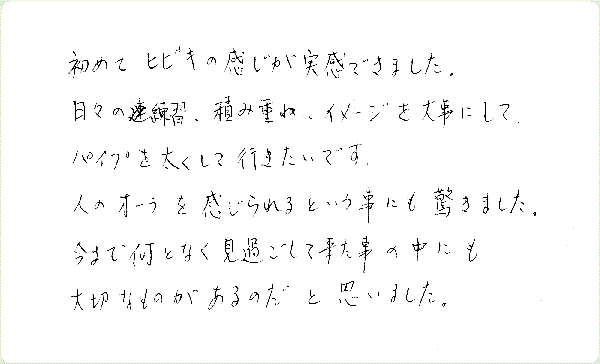 初めてヒビキの感じが実感できました。
日々の練習、積み重ね、イメージを大事にして、
パイプを太くして行きたいです。
人のオーラを感じられるという事にも驚きました。
今まで何となく見過ごして来た事の中にも
大切なものがあるのだと思いました。